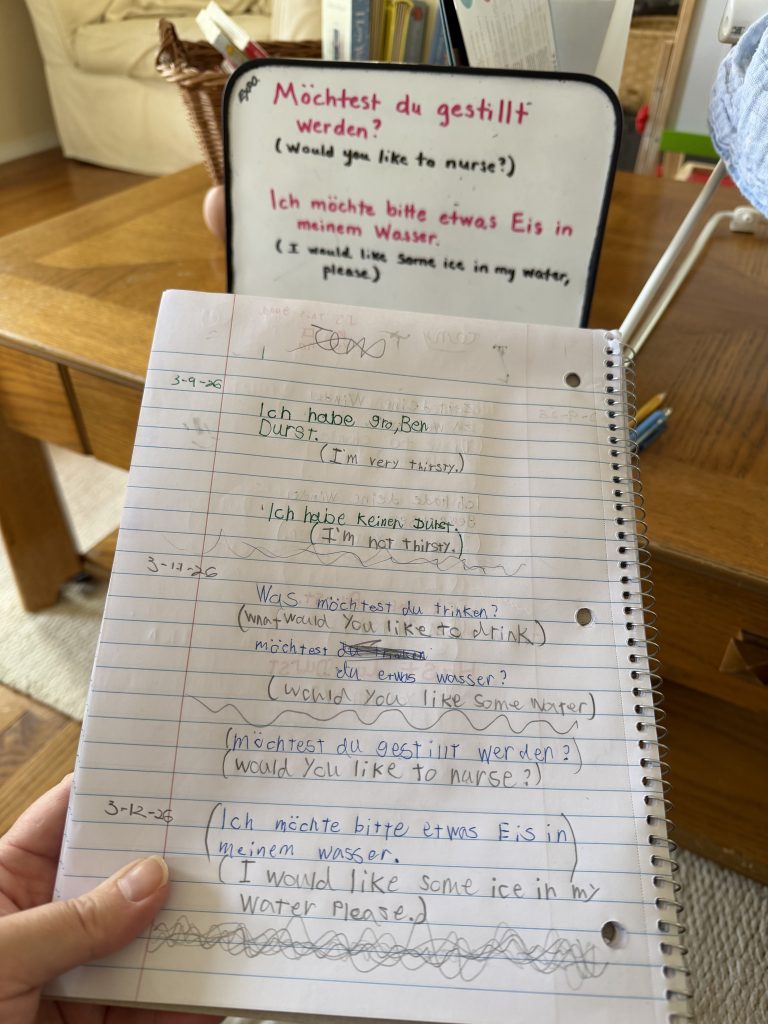 Möchtest du gestillt
werden?
(Would you like to nurse?)
Ich möchte bitte etwas Eis in
meinem Wasser.
(I would like some ice in my water,
please.)
3-9-26
Ich habe gro,Ben
Durst.
(I'm very thirsty.)
Ich habe keinen Durst.
(I'm not thirsty.)
3-11-26
Was möchtest du trinken?
(what would You like to drink.)
möchtest
du etwas wasser?
(would you like some water)
(möchtest du gestillt werden?)
(would You like to nurse?)
3-12-26
(Ich möchte bitte etwas Eis in
meinem wasser.)
(I would like some ice in my
water Please.)